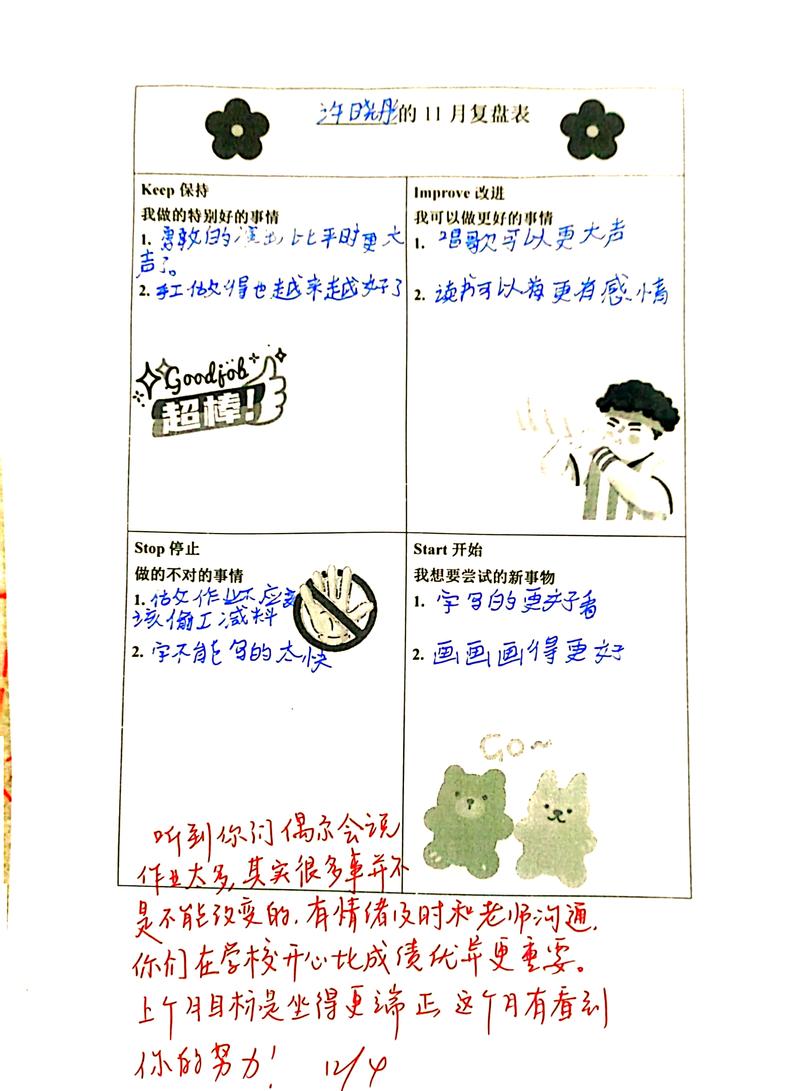 许晓彤的11月复盘表
Keep 保持
我做的特别好的事情
1. 勇敢的演出比平时更大
声了。
2. 手工做得也越来越好了
Goodjob
超棒!
Improve 改进
我可以做更好的事情
1. 唱歌可以更大声
2. 读书可以有更有感情
Stop 停止
做的不对的事情
1. 做作业不应
该偷工减料
2. 字不能写的太快
Start 开始
我想要尝试的新事物
1. 字写的更好看
2. 画画画得更好
Go~
听到你们偶尔会说
作业太多,其实很多事并不
是不能改变的,有情绪及时和老师沟通,
你们在学校开心比成绩优异更重要。
上个月目标是坐得更端正 这个月有看到
你的努力! 12/4